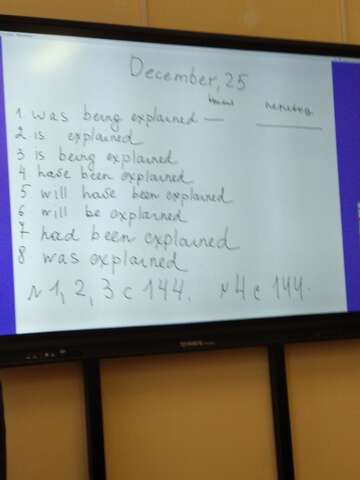 December, 25
1. was being explained — перевод
2 is explained
3 is being explained
4 have been explained
5. will have been explained
6 will be explained
7 had been explained
8 was explained
№1, 2, 3 с 144. №4 с 144.